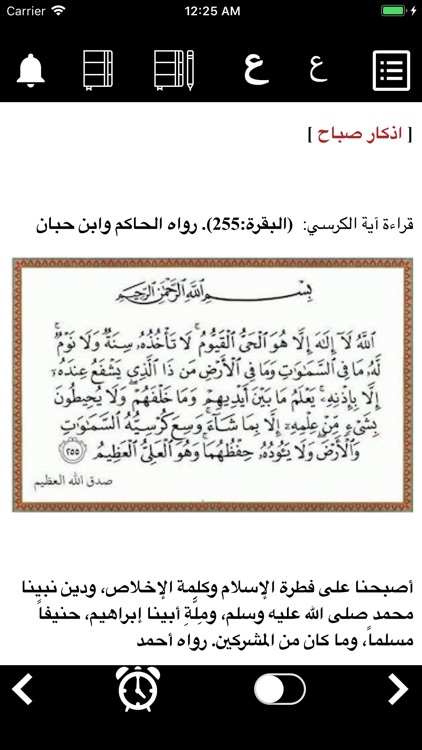 Carrier 12:25 AM
ع ع
[ اذكار صباح ]
قراءة آية الكرسي: (البقرة:255). رواه الحاكم وابن حبان
بِسْمِ اللَّهِ الرَّحْمَٰنِ الرَّحِيمِ
اللَّهُ لَا إِلَٰهَ إِلَّا هُوَ الْحَيُّ الْقَيُّومُ ۚ لَا تَأْخُذُهُ سِنَةٌ وَلَا نَوْمٌ ۚ
لَّهُ مَا فِي السَّمَاوَاتِ وَمَا فِي الْأَرْضِ ۗ مَن ذَا الَّذِي يَشْفَعُ عِندَهُ
إِلَّا بِإِذْنِهِ ۚ يَعْلَمُ مَا بَيْنَ أَيْدِيهِمْ وَمَا خَلْفَهُمْ ۖ وَلَا يُحِيطُونَ
بِشَيْءٍ مِّنْ عِلْمِهِ إِلَّا بِمَا شَاءَ ۚ وَسِعَ كُرْسِيُّهُ السَّمَاوَاتِ
وَالْأَرْضَ ۖ وَلَا يَئُودُهُ حِفْظُهُمَا ۚ وَهُوَ الْعَلِيُّ الْعَظِيمُ ٢٥٥
صدق الله العظيم
أصبحنا على فطرة الإسلام وكلمة الإخلاص، ودين نبينا
محمد صلى الله عليه وسلم، ومِلَّةِ أبينا إبراهيم، حنيفاً
مسلماً، وما كان من المشركين. رواه أحمد